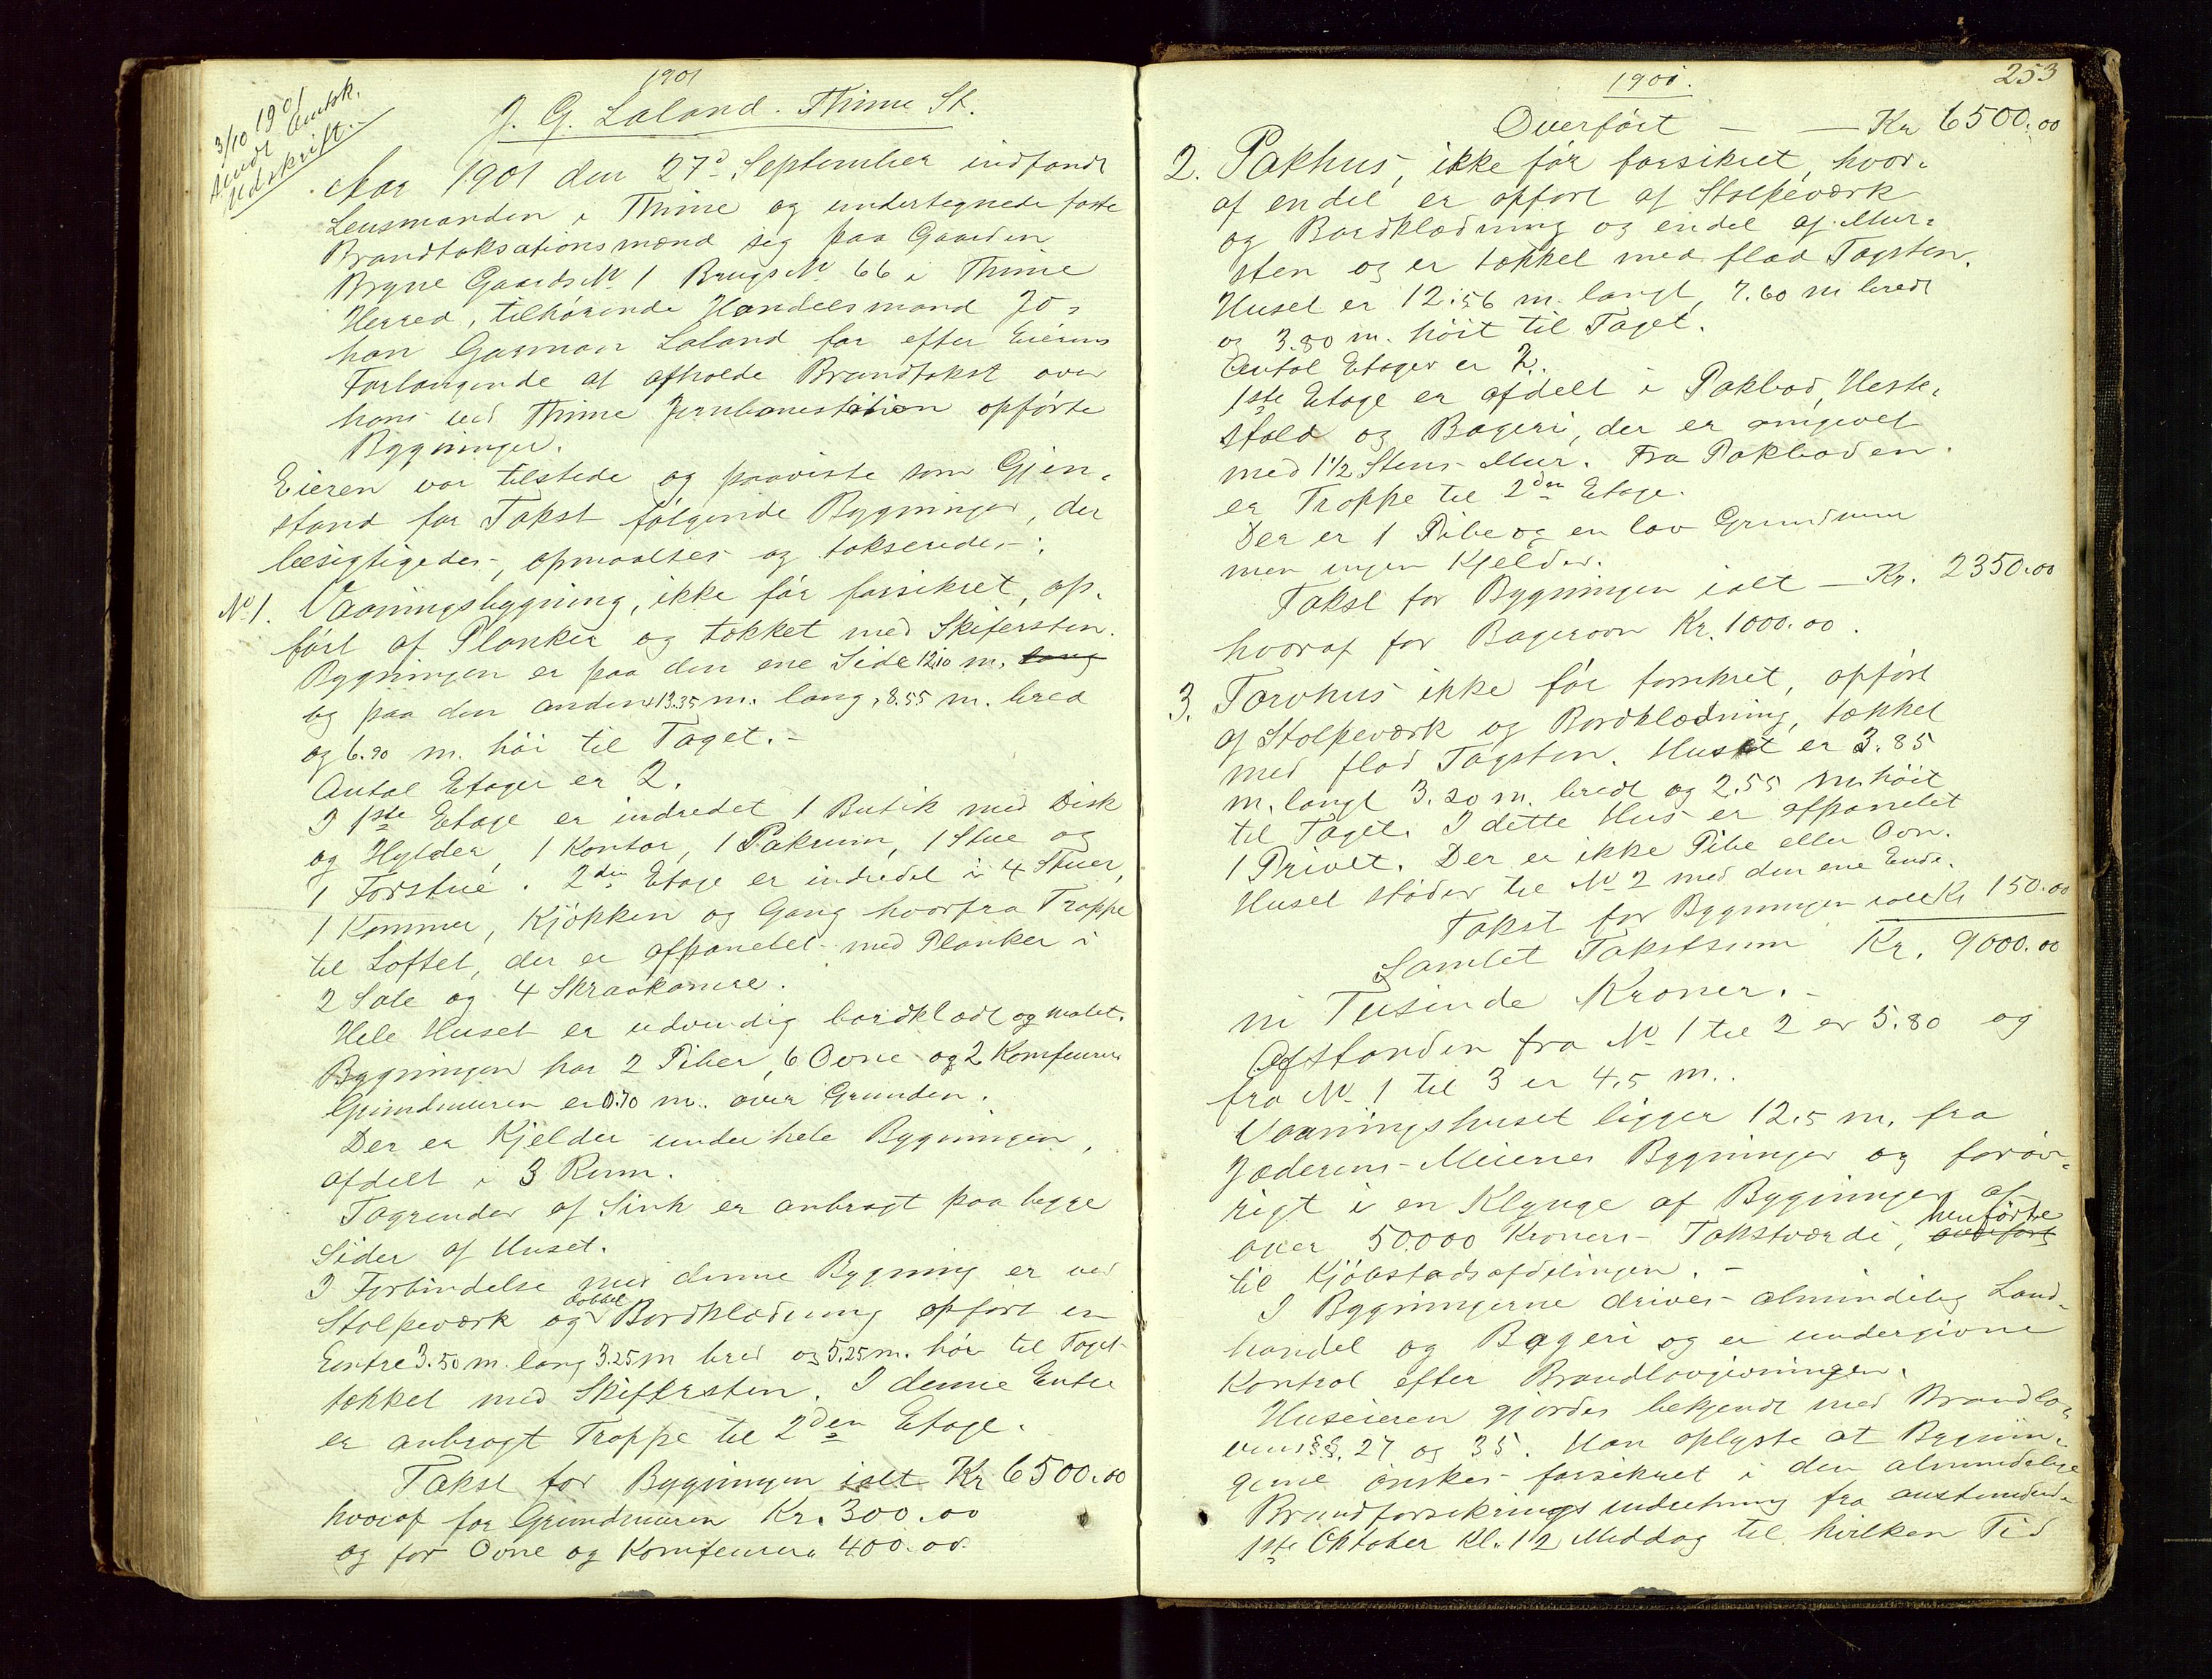 1901
J. G. Laland. Thime St.
3/10 1901
sendt Amtsk.
Udskrift.
Aar 1901 den 27d September indfandt
Lensmanden i Thime og undertegnede faste
Brandtaksationsmænd sig paa Gaarden
Bryne Gaards No 1 Brugs No 66 i Thime
Herred, tilhørende Handelsmand Jo-
han Garman Laland for efter Eierens
Forlangende at afholde Brandtakst over
hans ved Thime Jernbanestation opførte
Bygninger.
Eieren var tilstede og paaviste som Gjen-
stand for Takst følgende Bygninger, der
besigtigedes, opmaaltes og takseredes:
No 1. Vaaningsbygning, ikke før forsikret, op-
ført af Planker og tækket med Skifersten.
Bygningen er paa den ene Side 12.10 m. lang
og paa den anden 13.35 m. lang, 8.55 m. bred
og 6.90 m. høi til Taget.-
Antal Etager er 2.
I 1ste Etage er indredet 1 Butik med Disk
og Hylder, 1 Kontor, 1 Pakrum, 1 Stue og
1 Forstue. 2den Etage er indredet i 4 Stuer,
1 Kammer, Kjøkken og Gang hvorfra Trappe
til Loftet, der er afpanelet med Planker i
2 Sale og 4 Skraakamre.
Hele Huset er udvendig bordklædt og malet.
Bygningen har 2 Piber, 6 Ovne og 2 Komfeurer
Grundmuren er 0.70 m. over Grunden.
Der er Kjelder under hele Bygningen,
afdelt i 3 Rum.
Tagrender af Sink er anbragt paa begge
Sider af Huset.
I Forbindelse med denne Bygning er ved
Stolpeværk og dobbel Bordklædning opført en
Entre 3.50 m. lang 3.25 m bred og 5.25 m. høi til Taget
tækket med Skifersten. I denne Entre
er anbragt Trappe til 2den Etage.
Takst for Bygningen ialt Kr 6500.00
hvoraf for Grundmuren Kr. 300.00
og for Ovne og Komfeurer 400.00
1901.
253
Overført — — Kr 6500.00
2. Pakhus, ikke før forsikret, hvor-
af endel er opført af Stolpeværk
og Bordklædning og endel af Mur-
sten og er tækket med flad Tagsten.
Huset er 12.56 m. langt, 7.60 m bredt
og 3.80 m. høit til Taget.
Antal Etager er 2.
1ste Etage er afdelt i Pakbod, Heste-
stald og Bageri, der er omgivet
med 1 1/2 Stens Mur. Fra Pakboden
er Trappe til 2den Etage.
Der er 1 Pibe og en lav Grundmur
men ingen Kjelder.
Takst for Bygningen ialt — Kr. 2350.00
hvoraf for Bagerovn Kr. 1000.00.
3. Torvhus ikke før forsikret, opført
af Stolpeværk og Bordklædning, tækket
med flad Tagsten. Huset er 3.85
m. langt 3.20 m. bredt og 2.55 m. høit
til Taget. I dette Hus er afpanelet
1 Privet. Der er ikke Pibe eller Ovn.
Huset støder til No 2 med den ene Ende.
Takst for Bygningen ialt Kr 150.00
Samlet Takstsum Kr. 9000.00
ni Tusinde Kroner.-
Afstanden fra No 1 til 2 er 5.80 og
fra No 1 til 3 er 4.5 m.
Vaaningshuset ligger 12.5 m. fra
Jæderens Meieries Bygninger og forøv-
rigt i en Klynge af Bygninger af
over 50.000 Kroners Takstværdi, henførte
til Kjøbstadsafdelingen.-
I Bygningerne drives almindelig Land-
handel og Bageri og er undergivne
Kontrol efter Brandlovgivningen.
Huseieren gjordes bekjendt med Brandlo-
vens §§. 27 og 35. Han oplyste at Bygnin-
gerne ønskes forsikret i den almindelige
Brandforsikringsindretning fra anstundende
1ste Oktober Kl. 12 Middag til hvilken Tid